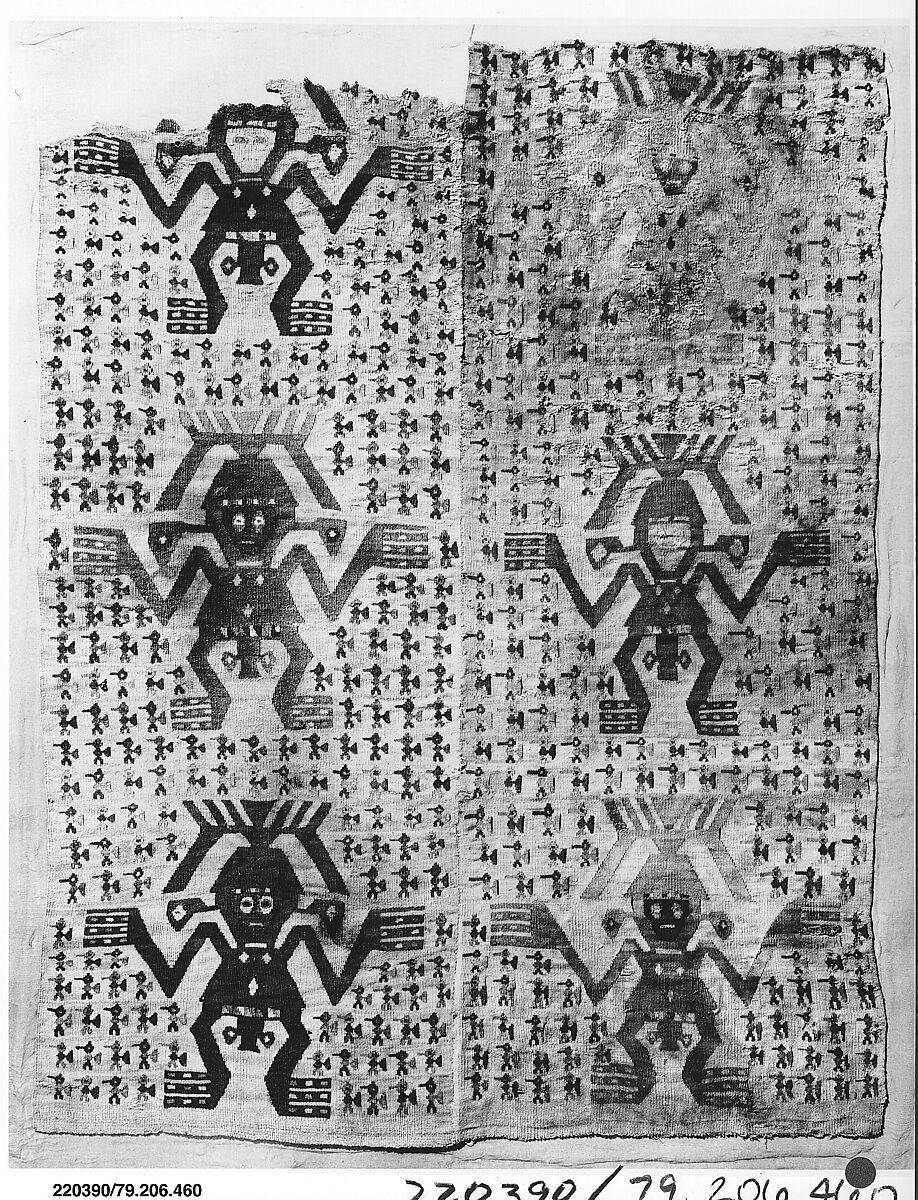 220390/79.206.460
220390/79.206.460